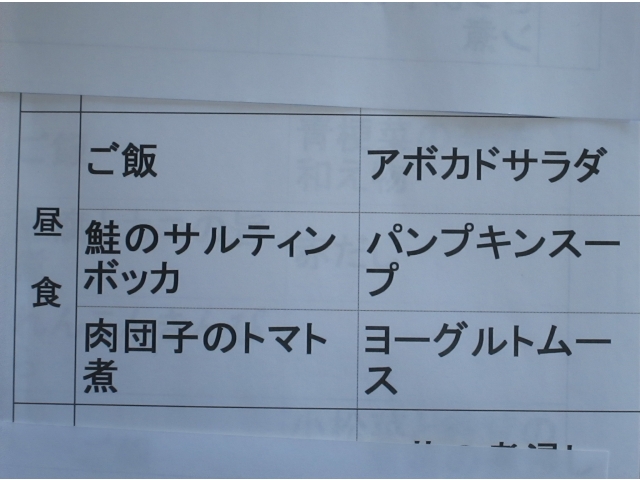 昼食
ご飯
アボカドサラダ
鮭のサルティン
ボッカ
パンプキンスー
プ
肉団子のトマト
煮
ヨーグルトムー
ス